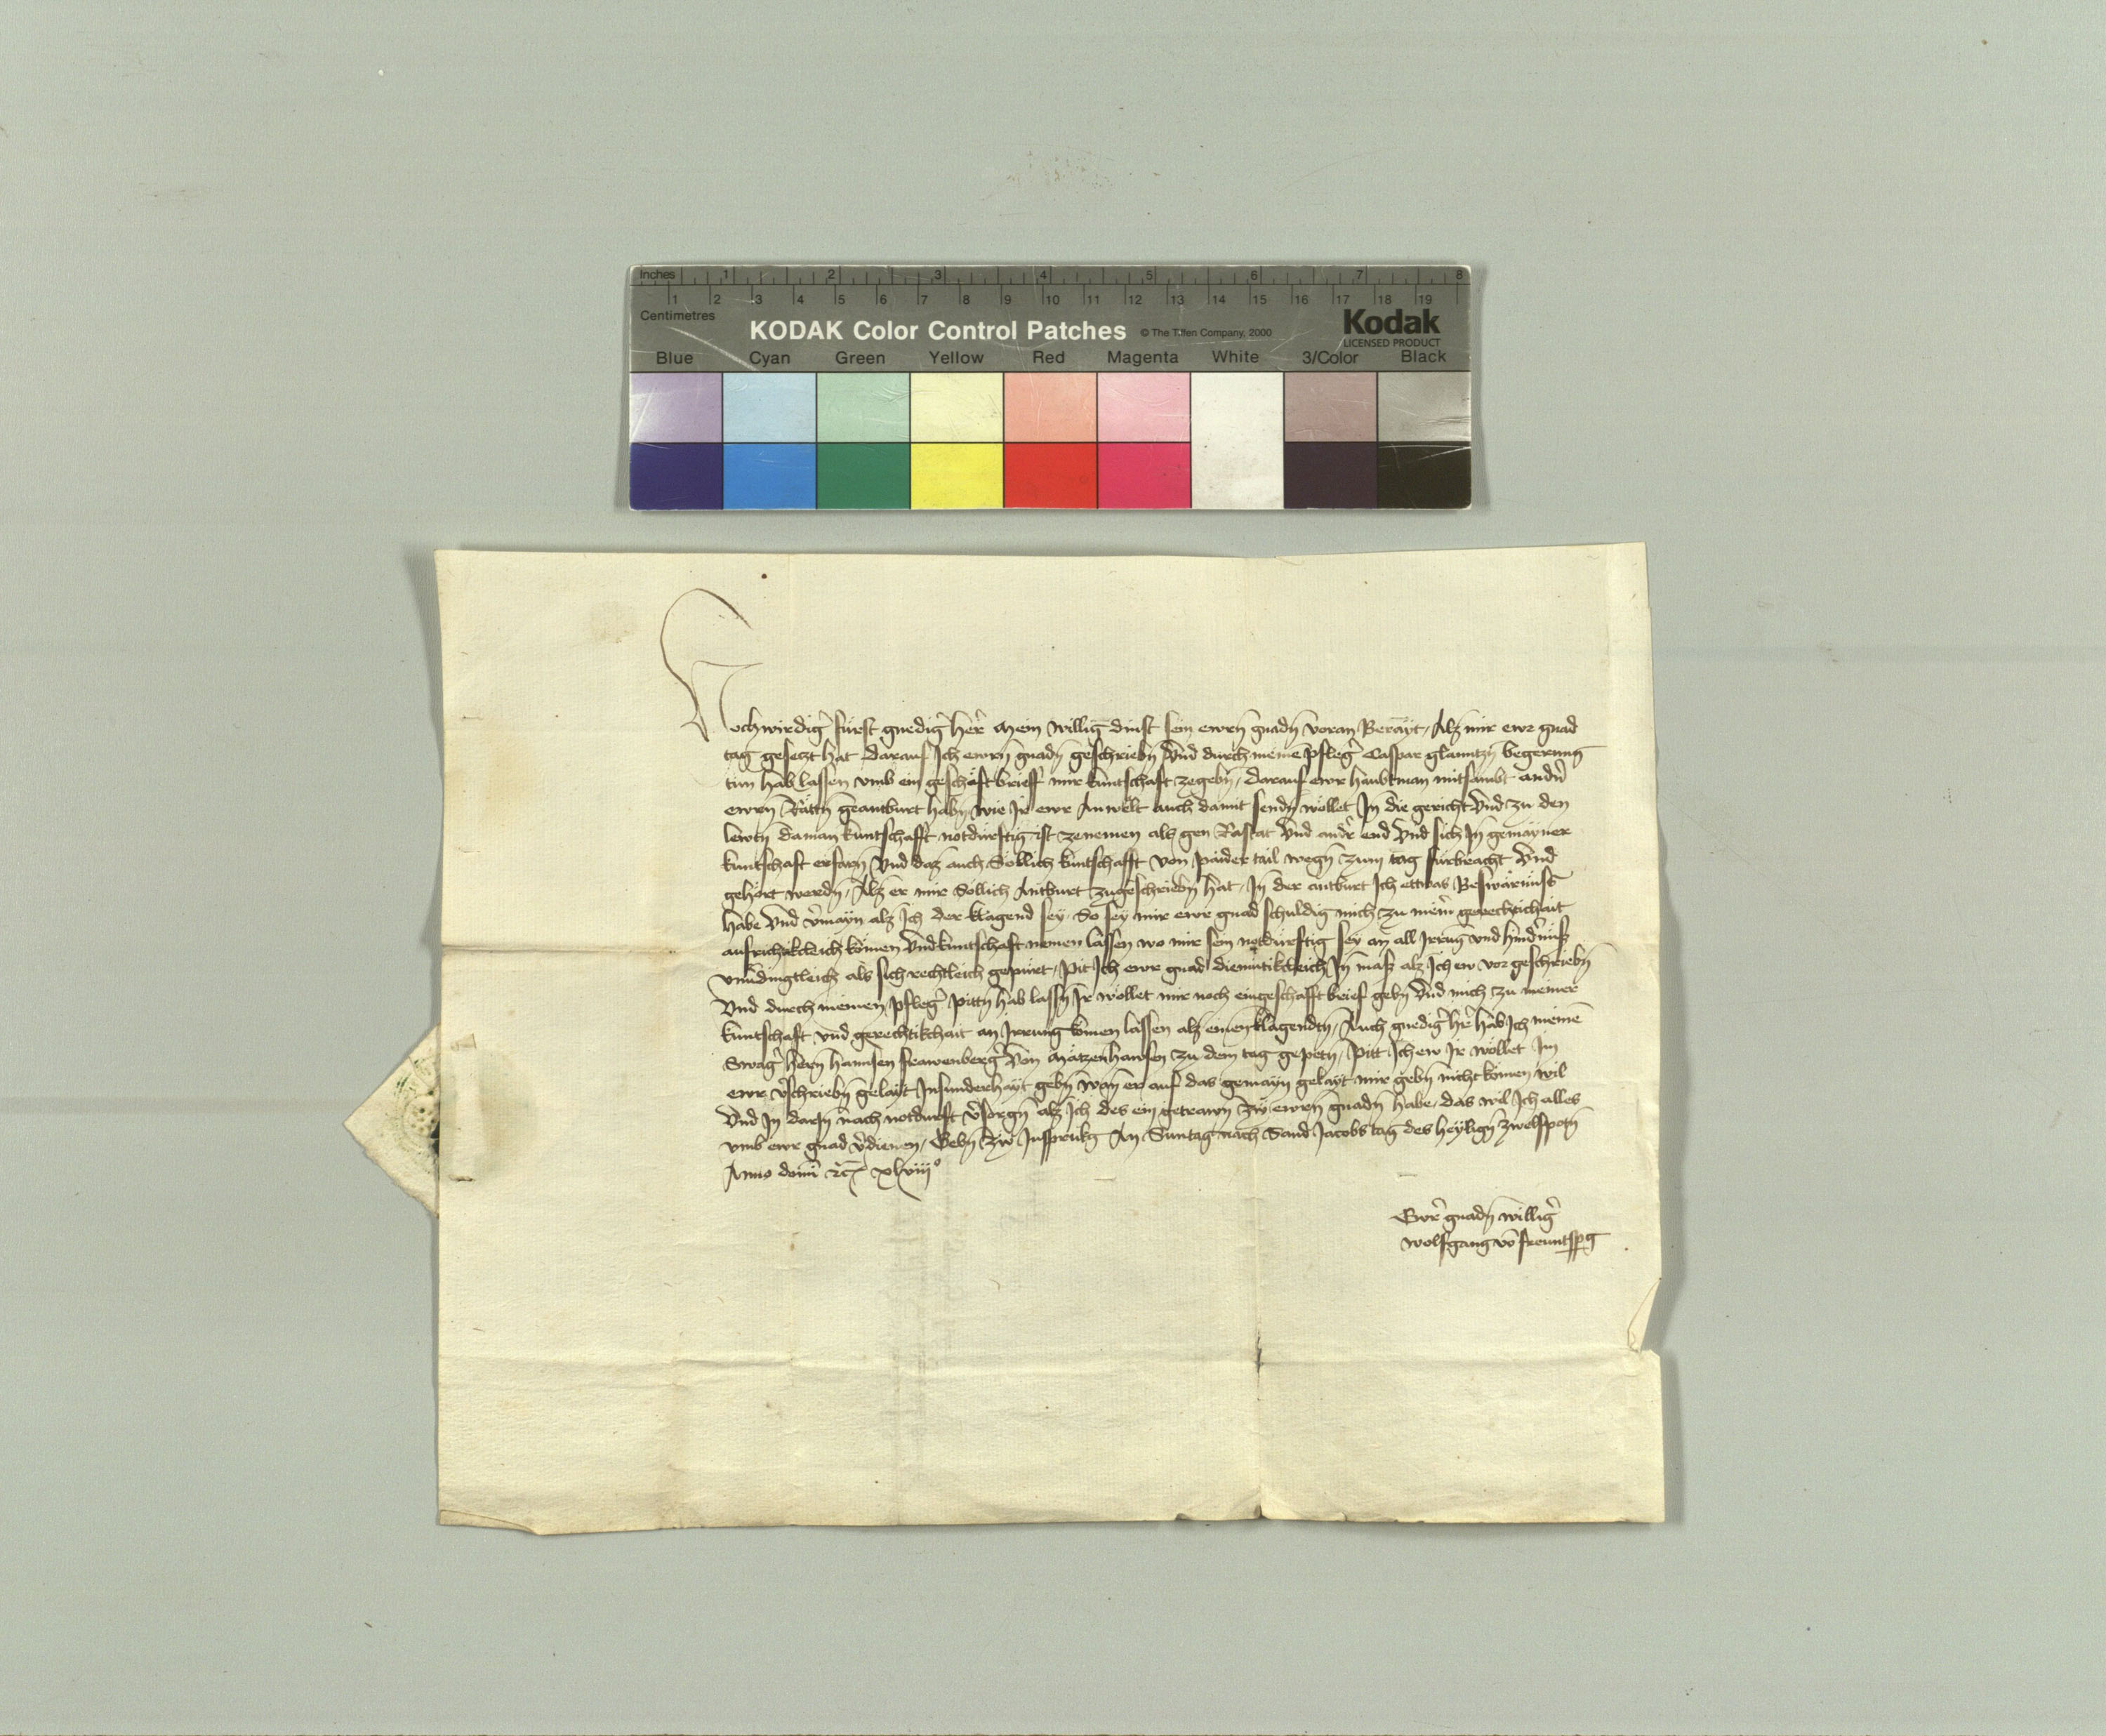 Inches 1 2 3 4 5 6 7 8
1 2 3 4 5 6 7 8 9 10 11 12 13 14 15 16 17 18 19
Centimetres
KODAK Color Control Patches © The Tiffen Company, 2000 Kodak
LICENSED PRODUCT
Blue Cyan Green Yellow Red Magenta White 3/Color Black
Hochwirdig̉ fürst gnedig̉ her̉ Mein willig dinst sein ewrn̄ gnadn̄ voran Berayt, Alz mir ewr gnad
tag gesetzt hat darauf Ich ewrn̄ gnadn̄ geschriebn̄ Vnd durch meinē pfleg̉ Caspar glauntzn̄ begerung
tun hab lassen vmb ein geschäft brieff mir kuntschaft zegebn̄, darauf ewr haubtman mitsambt andn̉
ewrn Rätn̄ geantburt habn̄ wie Ir ewr Anwelt auch damit sendn̄ wöllet In die gericht Vnd zu den
lewtn̄ da man kuntschafft notdürftig ist zenemen als gen Rastat Vnd andr̉ end Vnd sich In gemayner
kuntschaft erfarn̄ Vnd daz auch Söllich kuntschafft von paider tail wegn̄ zum tag fürbracht Vnd
gehört werdn̄, Alz er mir Söllich Antburt zugeschriebn̄ hat, In der antburt Ich ettwas Beswärnüss
habe Vnd v̉mayn alz Ich der klagend sey, So sey mir ewr gnad schuldig mich zu meīr gerechtichait
aufrichtikleich kömen Vnd kuntschaft nemen lassen wo mir sein notdürftig sey an all Irrūg vnd hindn̉üss
vnudingtleich als sich rechtleich gepüret, Pit Ich ewr gnad diemütikleich In mass alz Ich ew vor geschriebn̄
Vnd durch meinen pfleg̉ pittn̄ hab lassn̄ Ir wöllet mir noch ein geschäfft brief gebn̄ Vnd mich zu meiner
kuntschaft vnd gerechtikhait an Irrung kömen lassen alz einen klagendtn̄, Auch gnedig̉ hr̉ hab Ich meinē
Swag̉ hern̄ hannsen frawenberg̉ von Mätzenhausen zu dem tag gepetn̄, Pitt Ich ew Ir wöllet Im
ewr v̉schriebn̄ gelayt Insunderhayt gebn̄ wan̄ er auf das gemayn gelayt mir gebn̄ nicht kömen wil
Vnd In darIn nach notdurft v̉sorgn̄ alz Ich des ein getrawn zw ewrn̄ gnadn̄ habe, das wil Ich alles
vmb ewr gnad v̉dienen, Gebn̄ zw Insprukg An Suntag nach Sand Jacobs tag des heylign̄ zwelfpotn̄
Anno domī rc̄ xlviijº
Ewr̉ gnadn̄ willig̉
wolfgang vō freuntsp̲g